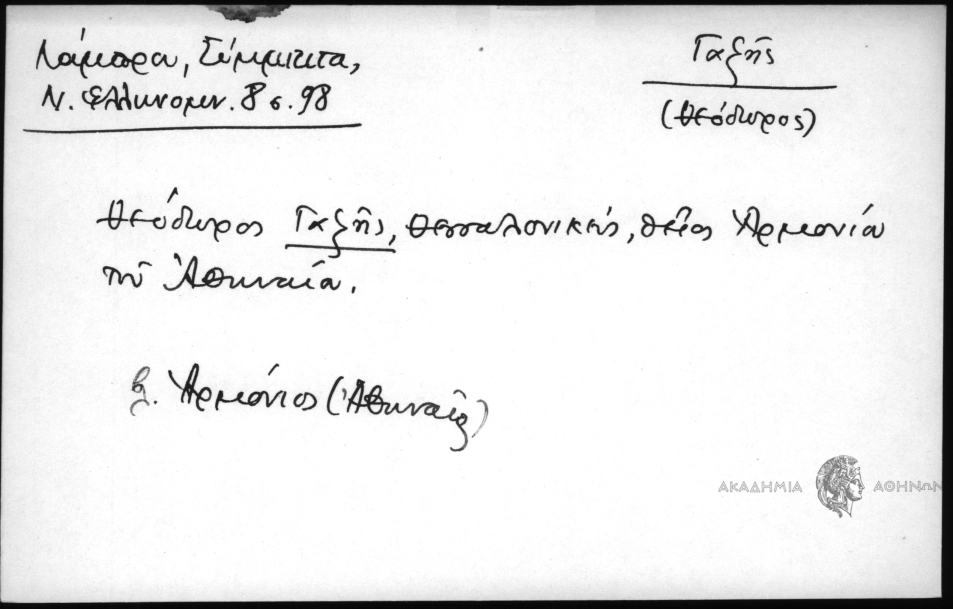 Λάμπρου, Σύμμικτα,
Ν. Ἑλληνομν. 8 σ. 98
Γαζῆς
(Θεόδωρος)
Θεόδωρος Γαζῆς, Θεσσαλονικεύς, θεῖος Ἁρμονίου
τοῦ Ἀθηναίου.
βλ. Ἁρμόνιος (Ἀθηναῖος)
ΑΚΑΔΗΜΙΑ ΑΘΗΝΩΝ